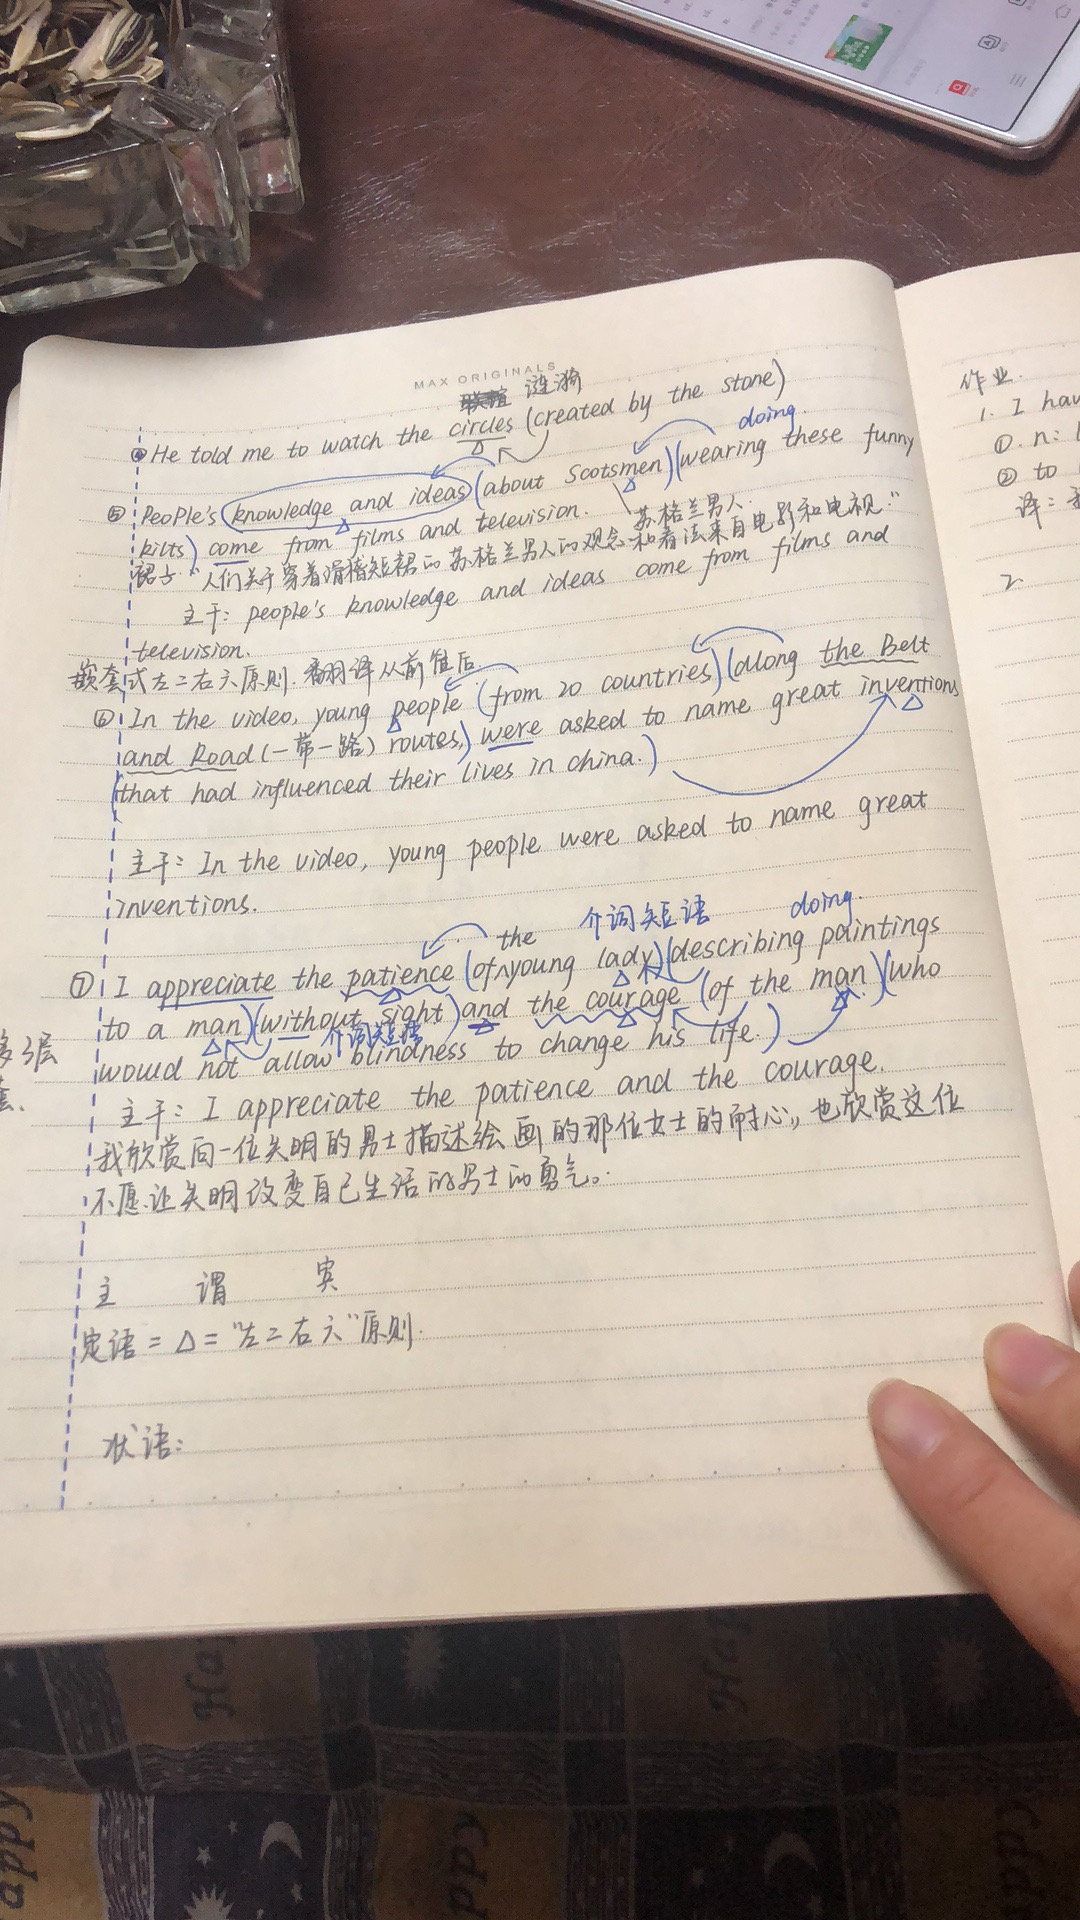 MAX ORIGINALS
涟漪
④He told me to watch the circles (created by the stone)
doing.
⑤ People's (knowledge and ideas) (about Scotsmen) (wearing these funny
苏格兰男人.
kilts) come from films and television.
裙子. "人们关于穿着滑稽短裙的苏格兰男人的观念和看法来自电影和电视."
主干: people's knowledge and ideas come from films and
television.
嵌套式左二右六原则. 翻译从前往后.
⑥ In the video, young people (from 20 countries) (along the Belt
and Road (一带一路) routes,) were asked to name great inventions
(that had influenced their lives in china.)
主干: In the video, young people were asked to name great
inventions.
the 介词短语 doing.
⑦ I appreciate the patience (of young lady) (describing paintings
to a man) (without sight) and the courage (of the man) (who
介词短语
would not allow blindness to change his life.)
主干: I appreciate the patience and the courage.
我欣赏向一位失明的男士描述绘画的那位女士的耐心, 也欣赏这位
不愿让失明改变自己生活的男士的勇气.
主 谓 宾
定语 = △ = "左二右六"原则.
状语:
作业.
1. I hav
①. n:
② to
译:
2.